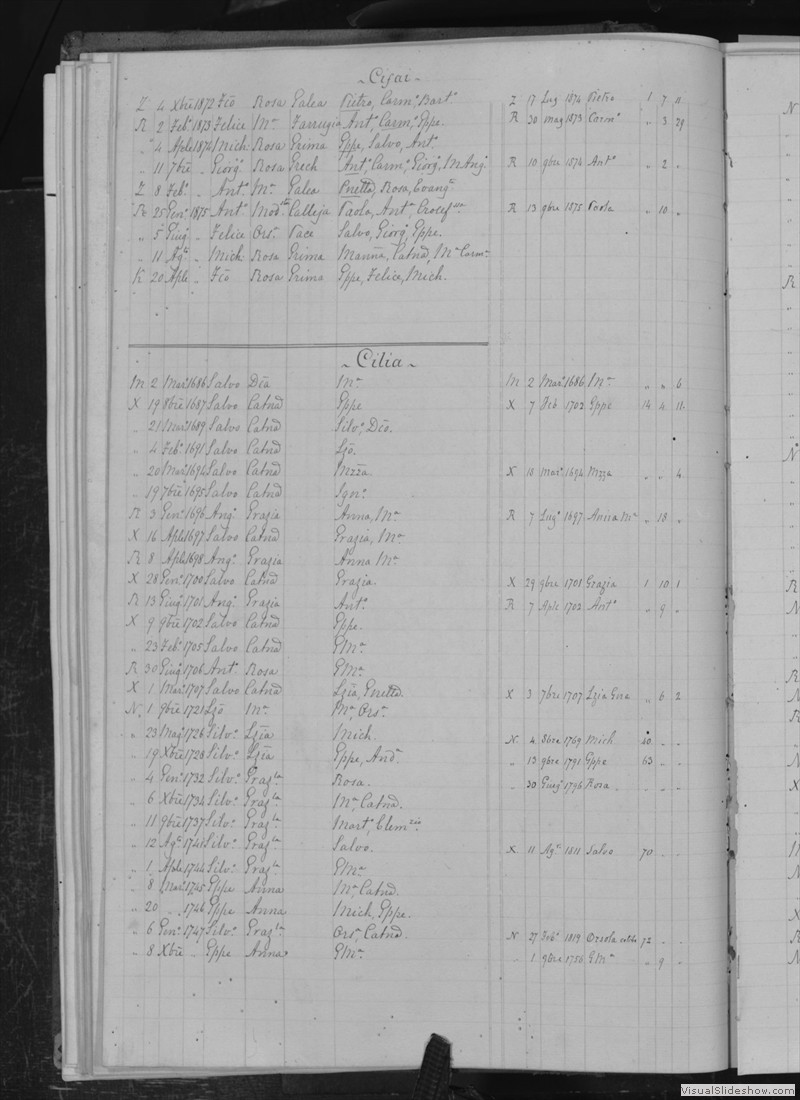 Cisai
Z 4 Xbre 1872 Fco Rosa Galea Pietro, Carm.a Bart.o Z 17 Lug 1874 Pietro 1 7 11
R 2 Feb.o 1873 Felice M.a Farrugia Ant.o, Carm.o, Gppe. R 30 mag 1873 Carm.o „ 3 29
„ 4 Aple 1874 Mich: Rosa Grima Gppe, Salvo, Ant.o
„ 11 7bre „ Giorg.o Rosa Grech Ant.o, Carm.o, Giorg.o, M Ang.o R 10 9bre 1874 Ant.o „ 2 „
Z 8 Feb.o „ Ant.o M.a Galea Rosa,
R 25 Gen.o 1875 Ant.o Calleja Paolo, Ant.o R 13 9bre 1875 Paola „ 10 „
„ 5 Giug „ Felice Ors.a Pace Salvo, Giorg.o, Gppe.
„ 11 Ag.to „ Mich: Rosa Grima Catna, M.a Carm.a
K 20 Aple „ Fco Rosa Grima Gppe, Felice, Mich.
Cilia
M 2 Mar.o 1686 Salvo Dia M.a M 2 Mar.o 1686 M.a „ „ 6
X 19 8bre 1687 Salvo Catna Gppe X 7 Feb 1702 Gppe 14 4 11
„ 21 Mar.o 1689 Salvo Catna Silv.o, Dco.
„ 4 Feb.o 1691 Salvo Catna Lzo.
„ 20 Mar.o 1694 Salvo Catna Mzza X 18 Mar.o 1694 Mzza „ „ 4
„ 19 7bre 1695 Salvo Catna Ign.o
R 3 Gen.o 1696 Ang.o Grazia Anna, M.a R 7 Lug.o 1697 Anna M.a „ 18 „
X 16 Aple 1697 Salvo Catna Grazia, M.a
R 8 Aple 1698 Ang.o Grazia Anna M.a
X 28 Gen.o 1700 Salvo Catna Grazia. X 29 9bre 1701 Grazia 1 10 1
R 13 Giug.o 1701 Ang.o Grazia Ant.o R 7 Aple 1702 Ant.o „ 9 „
X 9 9bre 1702 Salvo Catna Gppe.
„ 23 Feb.o 1705 Salvo Catna GMa.
R 30 Giug.o 1706 Ant.o Rosa GMa.
X 1 Mar.o 1707 Salvo Catna Lzia, X 3 7bre 1707 Lzia „ 6 2
N 1 9bre 1721 Lzo M.a M.a Ors.a
„ 23 Mag.o 1726 Silv.o Lzia Mich. N 4 8bre 1769 Mich 40 „ „
„ 19 Xbre 1728 Silv.o Lzia Gppe, And.a „ 13 9bre 1791 Gppe 63 „ „
„ 4 Gen.o 1732 Silv.o Graz.la Rosa. „ 30 Giug.o 1796 Rosa „ „ „
„ 6 Xbre 1734 Silv.o Graz.la M.a, Catna.
„ 11 9bre 1737 Silv.o Graz.la Mart.a,
„ 12 Ag.o 1741 Silv.o Graz.la Salvo. X 11 Ag.o 1811 Salvo 70 „ „
„ 1 Aple 1744 Silv.o Graz.la GMa.
„ 8 Mar.o 1745 Gppe Anna M.a, Catna.
„ 20 „ 1746 Gppe Anna Mich, Gppe.
„ 6 Gen.o 1747 Silv.o Graz.la Ors.a, Catna. N 27 Feb.o 1819 Orsola 72 „ „
„ 8 Xbre „ Gppe Anna GMa. „ 1 9bre 1756 GMa „ 9 „
VisualSlideshow.com